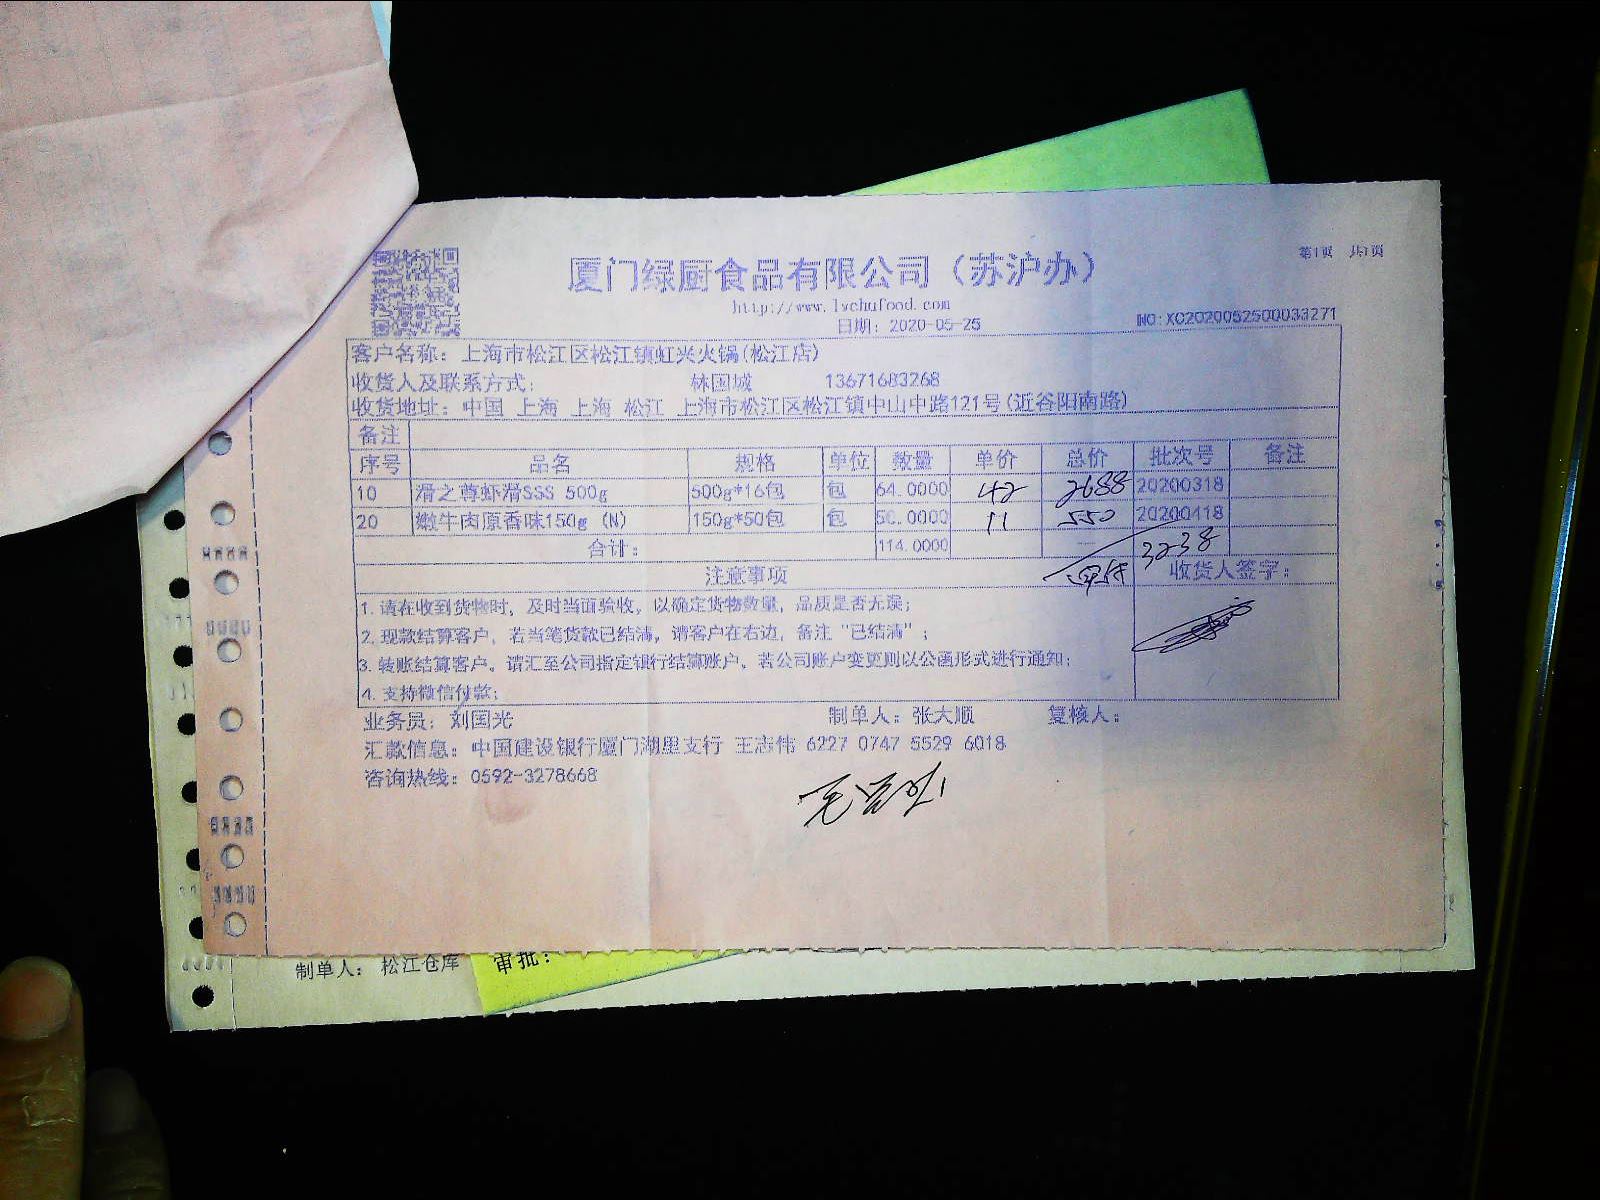 第1页 共1页
厦门绿厨食品有限公司（苏沪办）
http://www.lvchufood.com
日期：2020-05-25
NO:XC2020052500033271
客户名称：上海市松江区松江镇虹兴火锅(松江店)
收货人及联系方式： 林国城 13671683268
收货地址：中国 上海 上海 松江 上海市松江区松江镇中山中路121号(近谷阳南路)
备注
序号 品名 规格 单位 数量 单价 总价 批次号 备注
10 滑之尊虾滑SSS 500g 500g*16包 包 64.0000 42 2688 20200318
20 嫩牛肉原香味150g (N) 150g*50包 包 50.0000 11 550 20200418
合计： 114.0000 3238
注意事项 收货人签字：
1. 请在收到货物时，及时当面验收，以确定货物数量，品质是否无误；
2. 现款结算客户，若当笔货款已结清，请客户在右边，备注“已结清”；
3. 转账结算客户，请汇至公司指定银行结算账户，若公司账户变更则以公函形式进行通知；
4. 支持微信付款；
业务员：刘国光 制单人：张大顺 复核人：
汇款信息：中国建设银行厦门湖里支行 王志伟 6227 0747 5529 6018
咨询热线：0592-3278668
制单人： 松江仓库 审批：